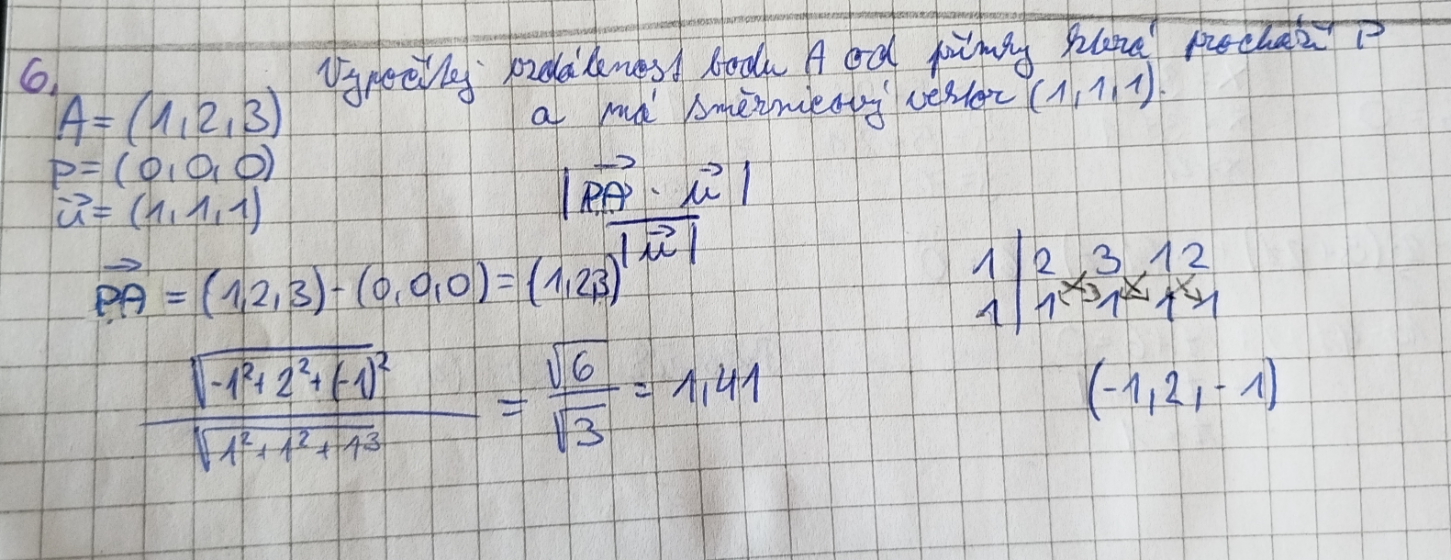 6. Vypočítej vzdálenost bodu A od přímky která prochází P
a má směrnicový vektor (1,1,1).
A = (1,2,3)
P = (0,0,0)
u⃗ = (1,1,1)
|PA⃗ · u⃗|
|u⃗|
PA⃗ = (1,2,3) - (0,0,0) = (1,2,3)
1 | 2 3 1 2
1 | 1 1 1 1
√-1²+2²+(-1)² / √1²+1²+1³ = √6 / √3 = 1,41
(-1,2,-1)